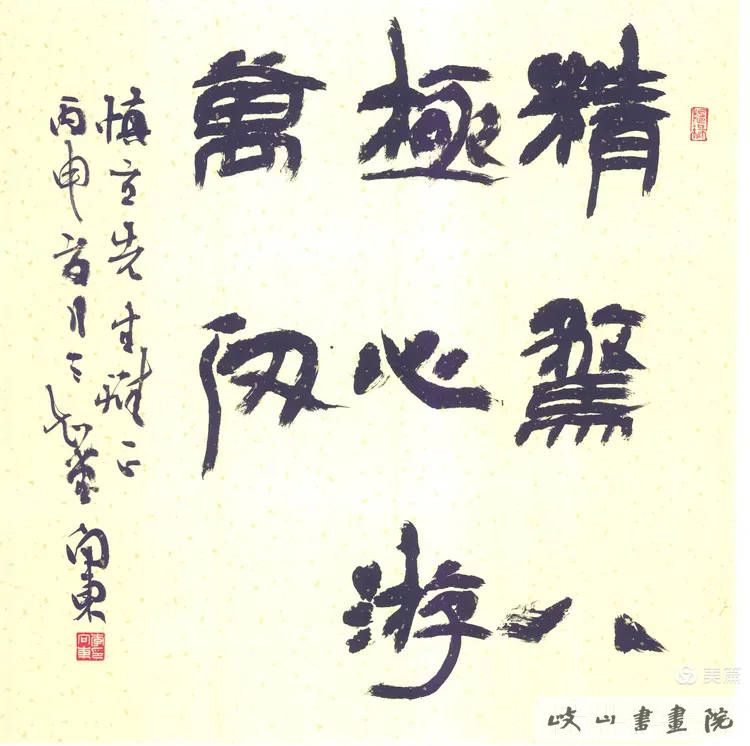 精騖八
極心游
萬仞
慎立先生雅正
丙申首月三知堂向東
美篇
岐山書畫院